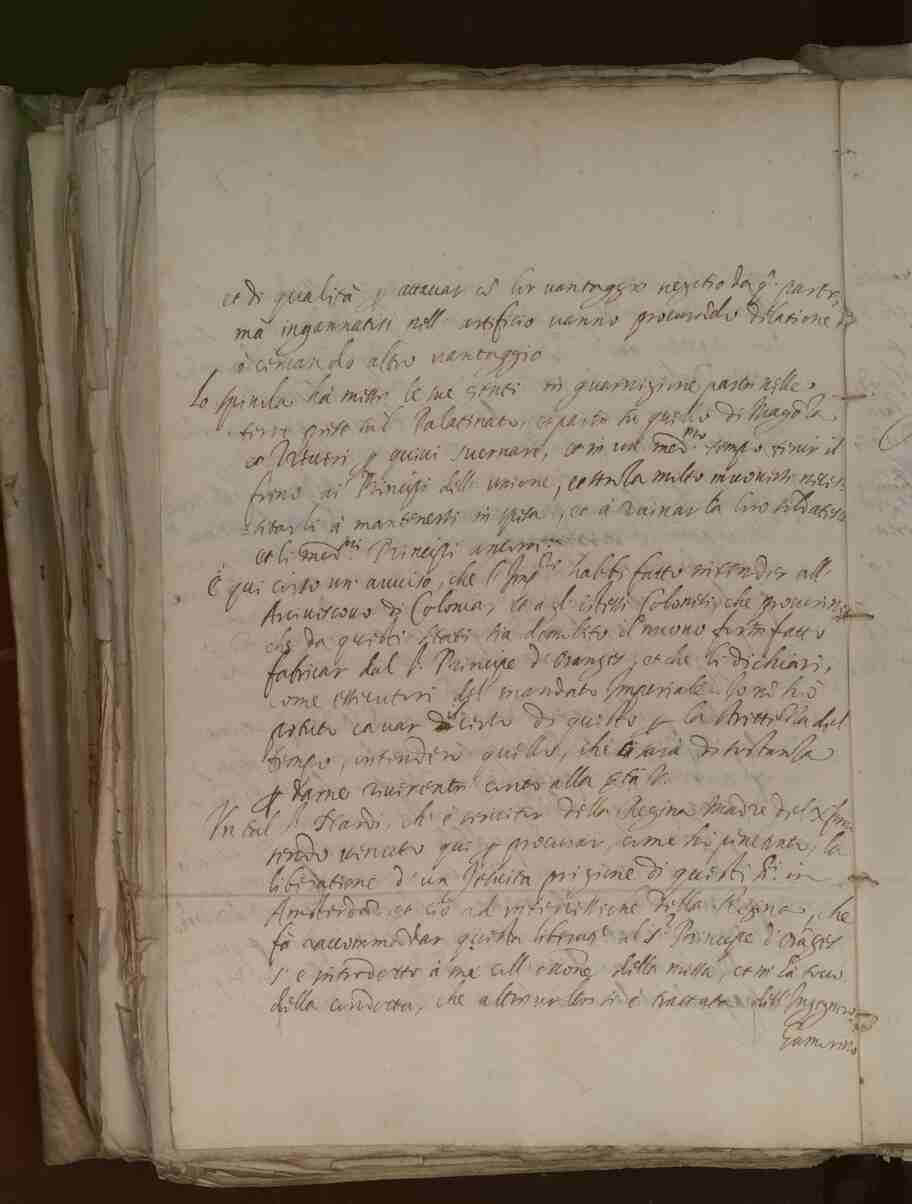 et di qualità p attacar con lor vantaggio negotio da q. parte,
mà ingannatisi nell' artificio vanno procurando dilatione di
ò cercando altro vantaggio
Lo spinola ha messo le sue genti in guarnigione parte nelle
terre prese nel Palatinato, et parte in quello di Magonza
et Treveri p quivi svernare, et in un med.mo tempo tenir il
freno ai Principi dell' unione, et tutta molto neces-
sitarli à mantenersi in spesa, et à ruinar la loro soldatesca
et li med.mi Principi ancora.
È qui corso un' avviso, che l' Imp.re habbi fatto intender all'
Arcivescovo di Colonia, et agl' istessi Coloniesi, che procurino
che da questi Stati sia demolito il nuovo forte fatto
fabricar dal S.r Principe d' Oranges, et che li dichiari,
come essecutori del mandato Imperiale. Io non hò
potuto cavar di certo di questo p la strettezza del
tempo, intenderò quello, che sarà di sostanza
p darne riverente conto alla S.tà V.
Un tal S.r che è della Regina Madre del X.mo
sendo venuto qui p procurar, come hò penetrato, la
liberatione d' un Jesuita prigione di questi SS.ri in
Amsterdam, et ciò ad intercessione della Regina, che
fà raccommandar questa liberat.e al S.r Principe d' Oranges
s' è introdotto à me all' della messa, et mi hà
della condotta, che altre volte si è trattata dell' Ingegnero
Gamurino